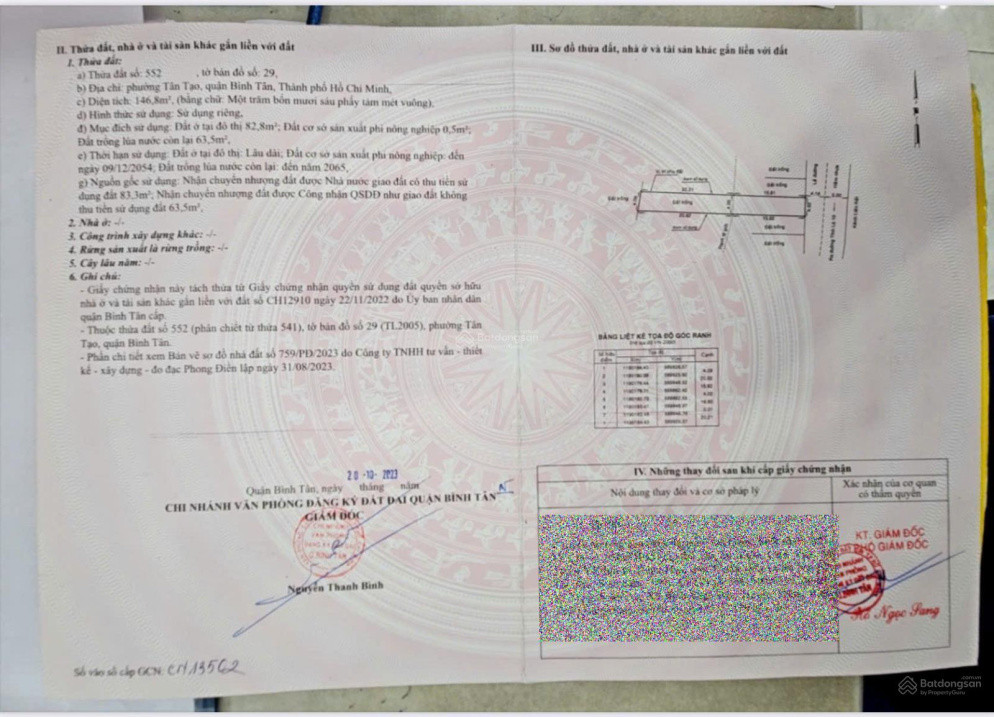 II. Thửa đất, nhà ở và tài sản khác gắn liền với đất
1. Thửa đất:
a) Thửa đất số: 552 , tờ bản đồ số: 29,
b) Địa chỉ: phường Tân Tạo, quận Bình Tân, Thành phố Hồ Chí Minh,
c) Diện tích: 146,8m², (bằng chữ: Một trăm bốn mươi sáu phẩy tám mét vuông),
d) Hình thức sử dụng: Sử dụng riêng,
đ) Mục đích sử dụng: Đất ở tại đô thị 82,8m²; Đất cơ sở sản xuất phi nông nghiệp 0,5m²;
Đất trồng lúa nước còn lại 63,5m²,
e) Thời hạn sử dụng: Đất ở tại đô thị: Lâu dài; Đất cơ sở sản xuất phi nông nghiệp: đến
ngày 09/12/2054; Đất trồng lúa nước còn lại: đến năm 2065,
g) Nguồn gốc sử dụng: Nhận chuyển nhượng đất được Nhà nước giao đất có thu tiền sử
dụng đất 83,3m²; Nhận chuyển nhượng đất được Công nhận QSDĐ như giao đất không
thu tiền sử dụng đất 63,5m²,
2. Nhà ở: -/-
3. Công trình xây dựng khác: -/-
4. Rừng sản xuất là rừng trồng: -/-
5. Cây lâu năm: -/-
6. Ghi chú:
- Giấy chứng nhận này tách thửa từ Giấy chứng nhận quyền sử dụng đất quyền sở hữu
nhà ở và tài sản khác gắn liền với đất số CH12910 ngày 22/11/2022 do Ủy ban nhân dân
quận Bình Tân cấp.
- Thuộc thửa đất số 552 (phân chiết từ thửa 541), tờ bản đồ số 29 (TL2005), phường Tân
Tạo, quận Bình Tân.
- Phần chi tiết xem Bản vẽ sơ đồ nhà đất số 759/PĐ/2023 do Công ty TNHH tư vấn - thiết
kế - xây dựng - đo đạc Phong Điền lập ngày 31/08/2023.
20 -10- 2023
Quận Bình Tân, ngày tháng năm
CHI NHÁNH VĂN PHÒNG ĐĂNG KÝ ĐẤT ĐAI QUẬN BÌNH TÂN
GIÁM ĐỐC
Nguyễn Thanh Bình
Số vào sổ cấp GCN: CH13562
III. Sơ đồ thửa đất, nhà ở và tài sản khác gắn liền với đất
Đất trống
Đất trống
Đất trống
Đất trống
Đất trống
Lề đường
BẢNG LIỆT KÊ TỌA ĐỘ GÓC RANH
Số hiệu
điểm
Tọa độ
Cạnh
IV. Những thay đổi sau khi cấp giấy chứng nhận
Nội dung thay đổi và cơ sở pháp lý
Xác nhận của cơ quan
có thẩm quyền
KT. GIÁM ĐỐC
PHÓ GIÁM ĐỐC
Ngọc Sang
Batdongsan
.com.vn
by PropertyGuru